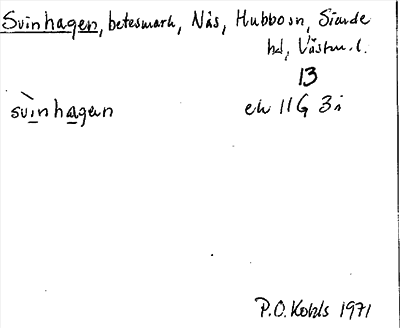 Svinhagen, betesmark, Nås, Hubbo sn, Siende
hd, Västm. l.
13
svinhagen ek 11G 3i
P.O. Kohls 1971